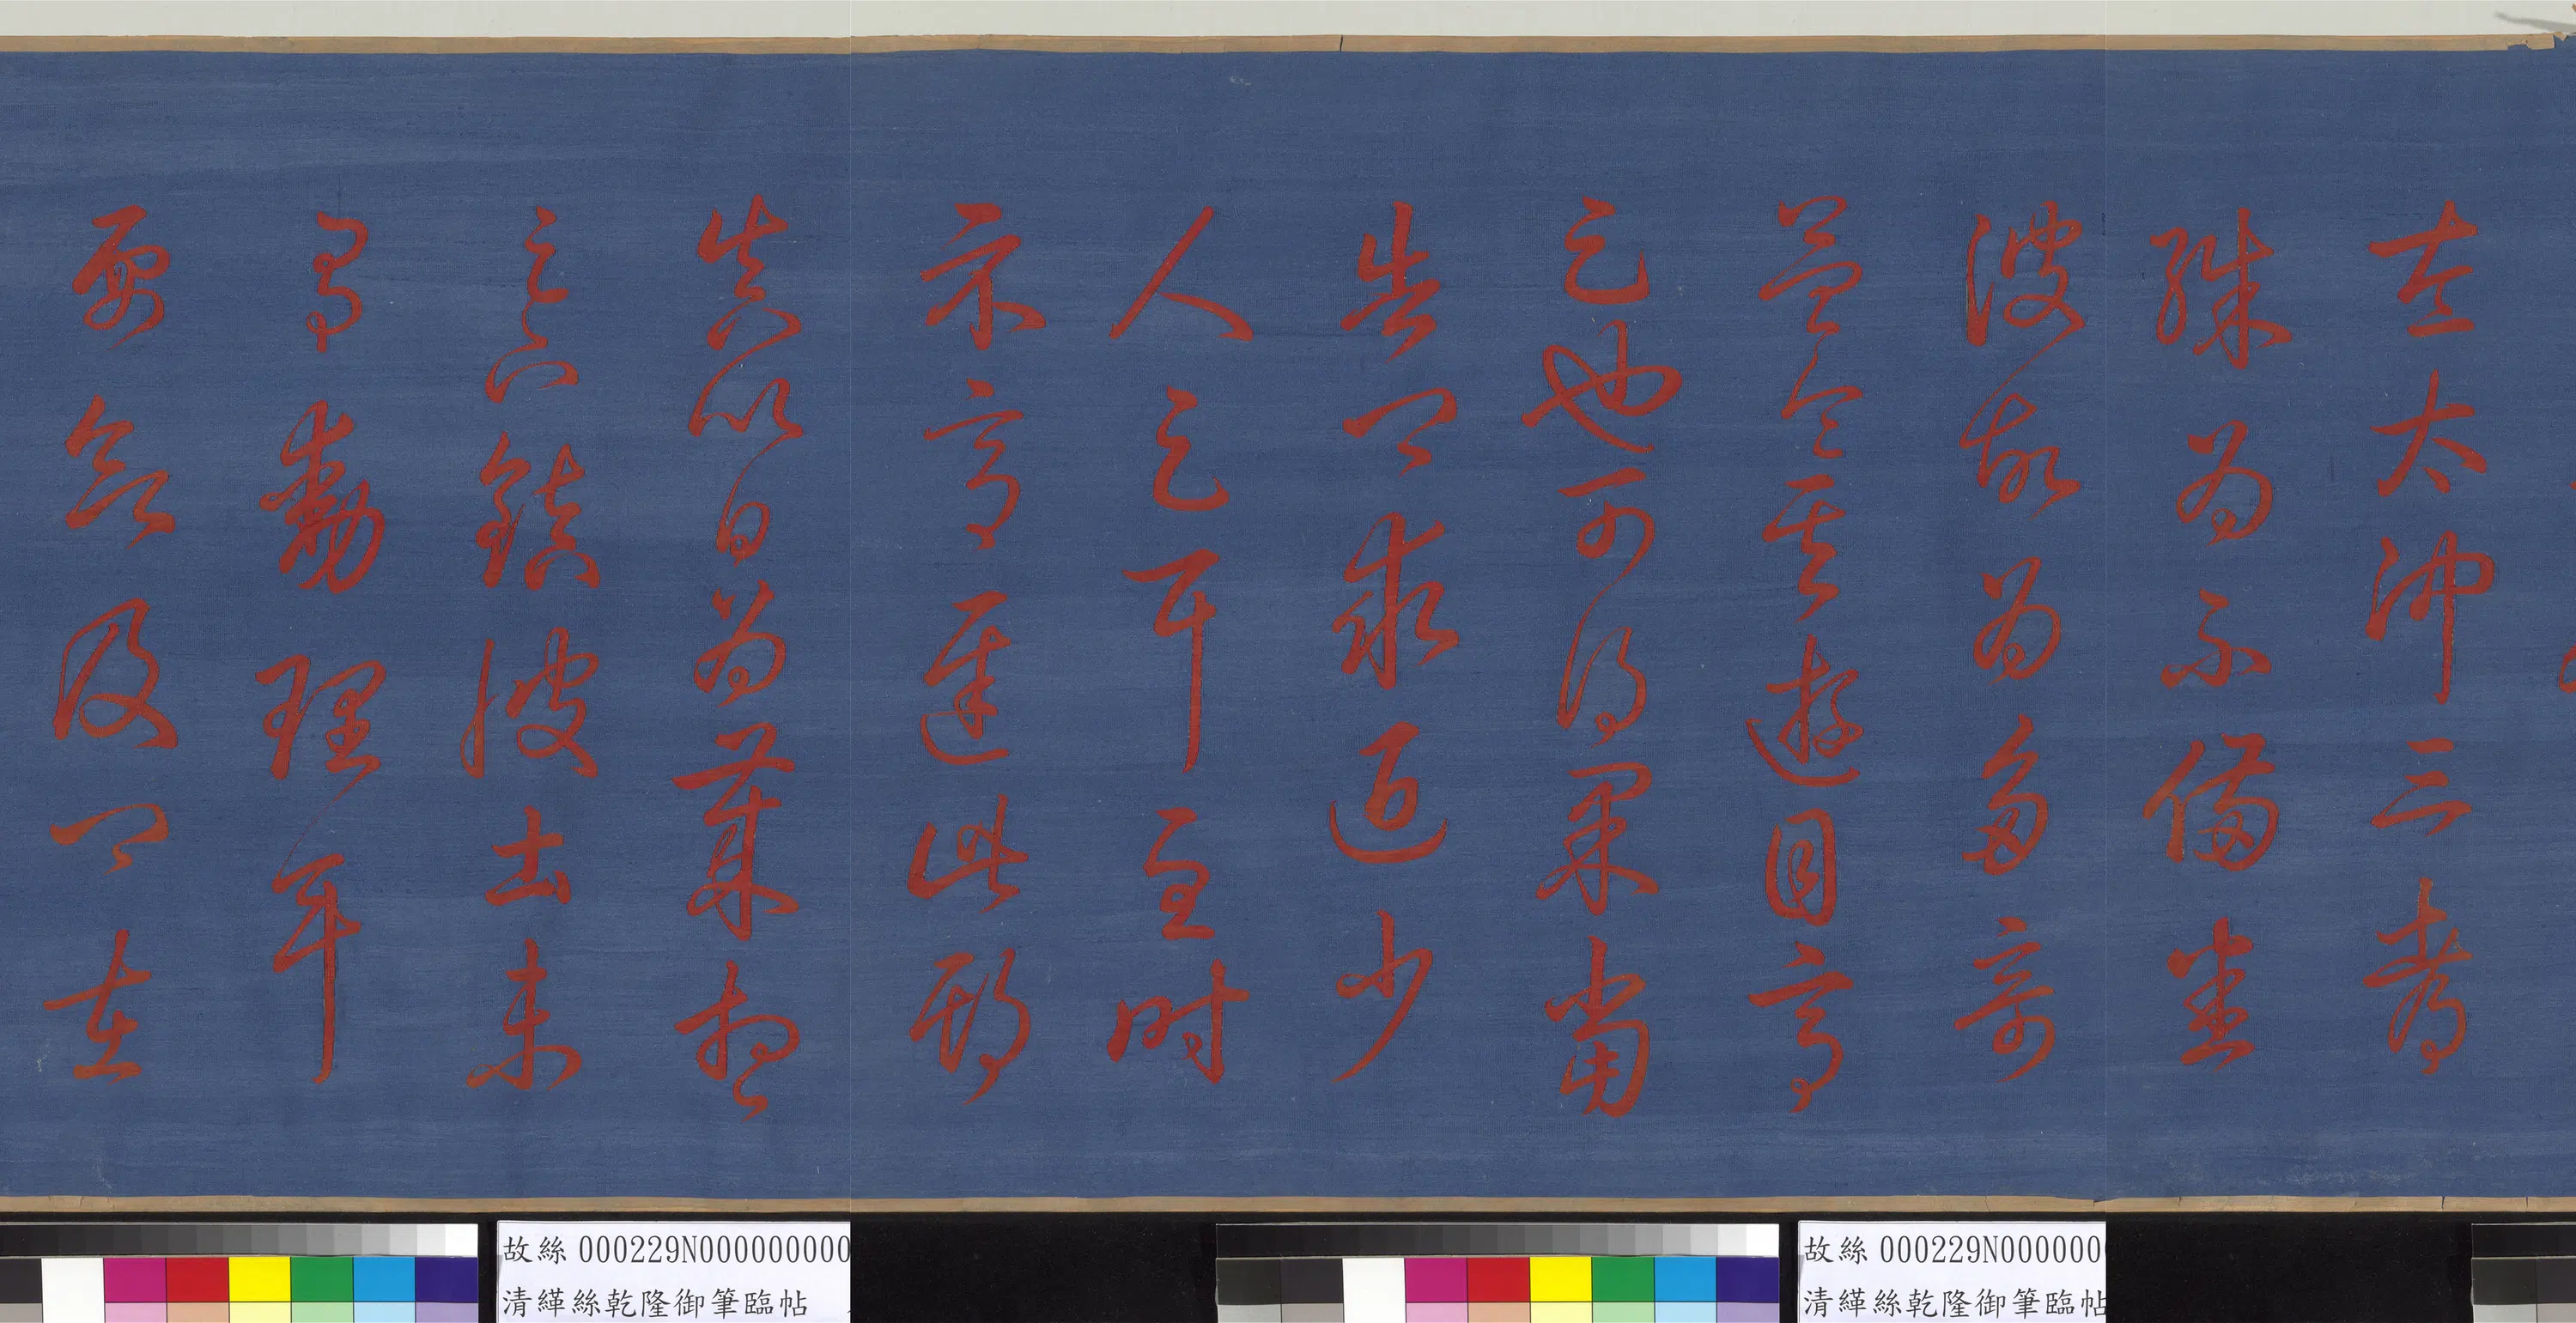 左太沖三都
殊為不備悉
彼故為多奇
益令其遊目意
足也可得果當
告卿求迎少
人足耳至時
示意遲此期
真以日為歲想
足下鎮彼土未
有動理耳
要欲及卿在
故絲 000229N000000000
清緙絲乾隆御筆臨帖
故絲 000229N000000
清緙絲乾隆御筆臨帖